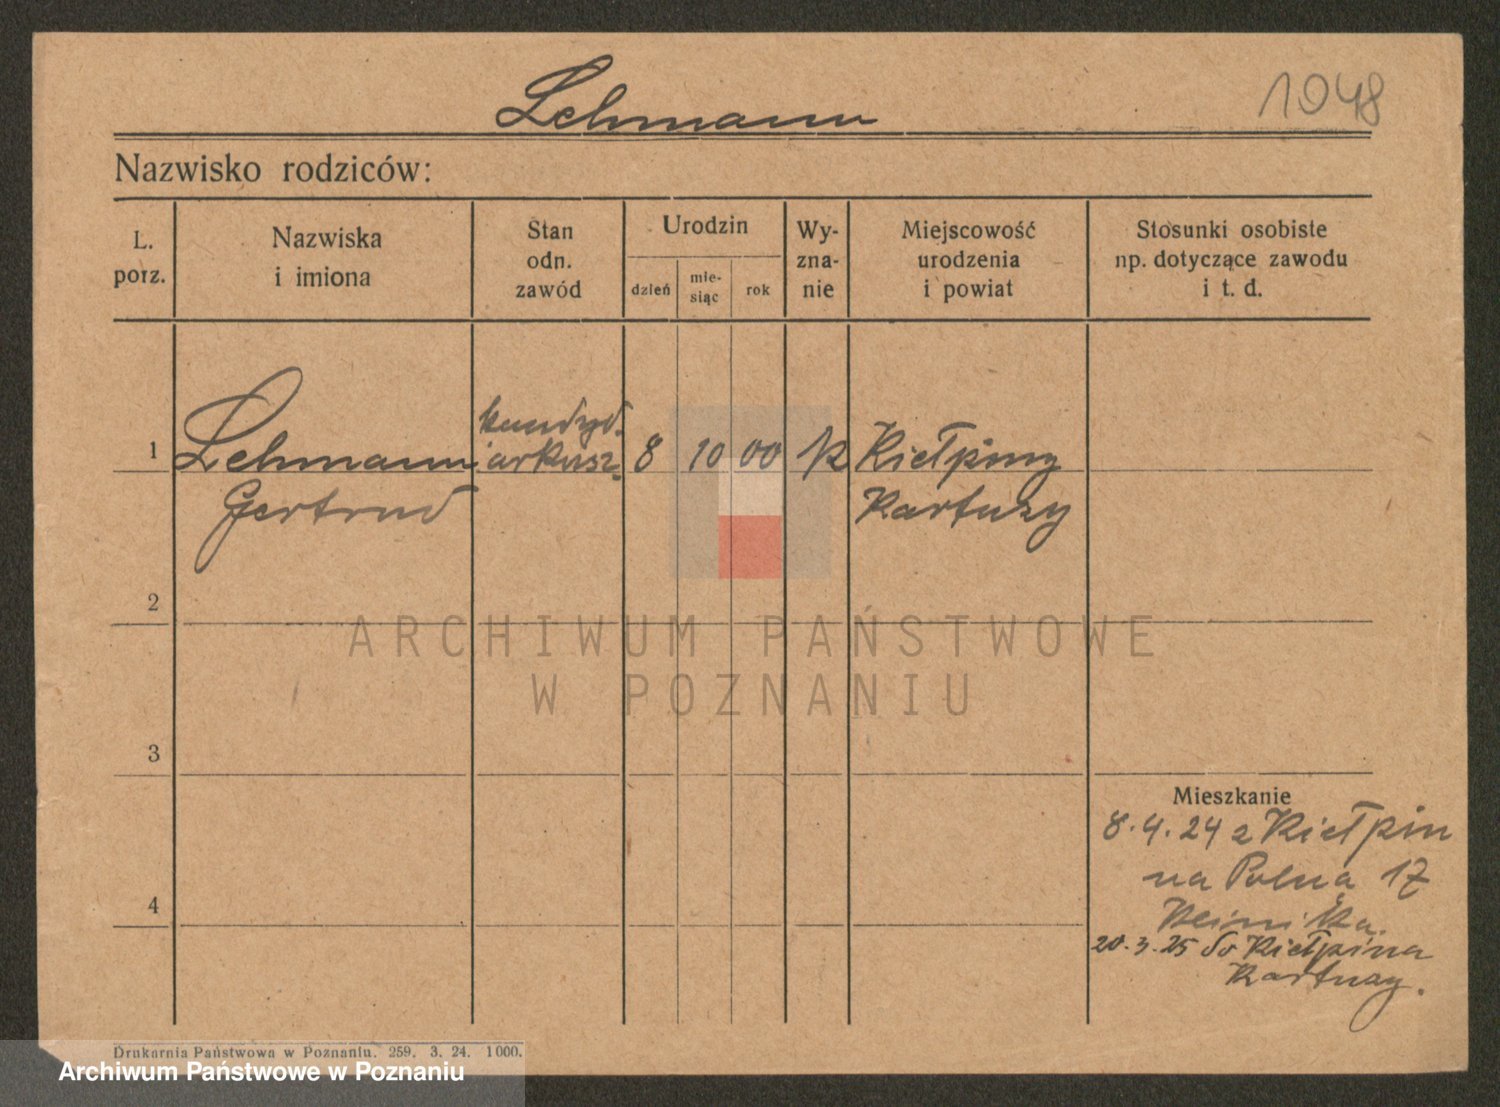 Lehmann
1048
Nazwisko rodziców:
L. porz.
Nazwiska i imiona
Stan odn. zawód
Urodzin
dzień
mie-
siąc
rok
Wy-
zna-
nie
Miejscowość
urodzenia
i powiat
Stosunki osobiste
np. dotyczące zawodu
i t. d.
1
Lehmann
Gertrud
8
10
00
Kiełpiny
Kartuzy
2
ARCHIWUM PAŃSTWOWE
W POZNANIU
3
4
Mieszkanie
8.4.24 z Kiełpin
na Polna 17
20.3.25 do Kiełpina
Kartuzy.
Drukarnia Państwowa w Poznaniu. 259. 3. 24. 1000.
Archiwum Państwowe w Poznaniu